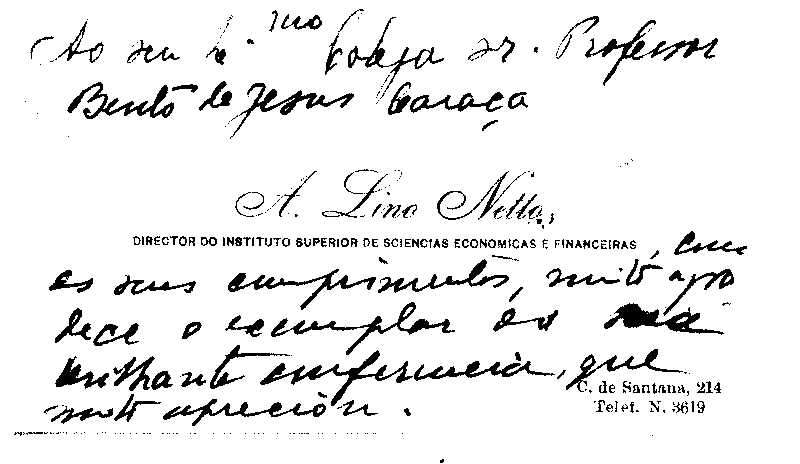 Ao seu Ex.mo Colega Sr. Professor
Bento de Jesus Caraça
A. Lino Netto,
DIRECTOR DO INSTITUTO SUPERIOR DE SCIENCIAS ECONOMICAS E FINANCEIRAS, com
os seus cumprimentos, muito agra
dece o exemplar da sua
brilhante conferencia, que
muito apreciou.
C. de Santana, 214
Telef. N. 3619